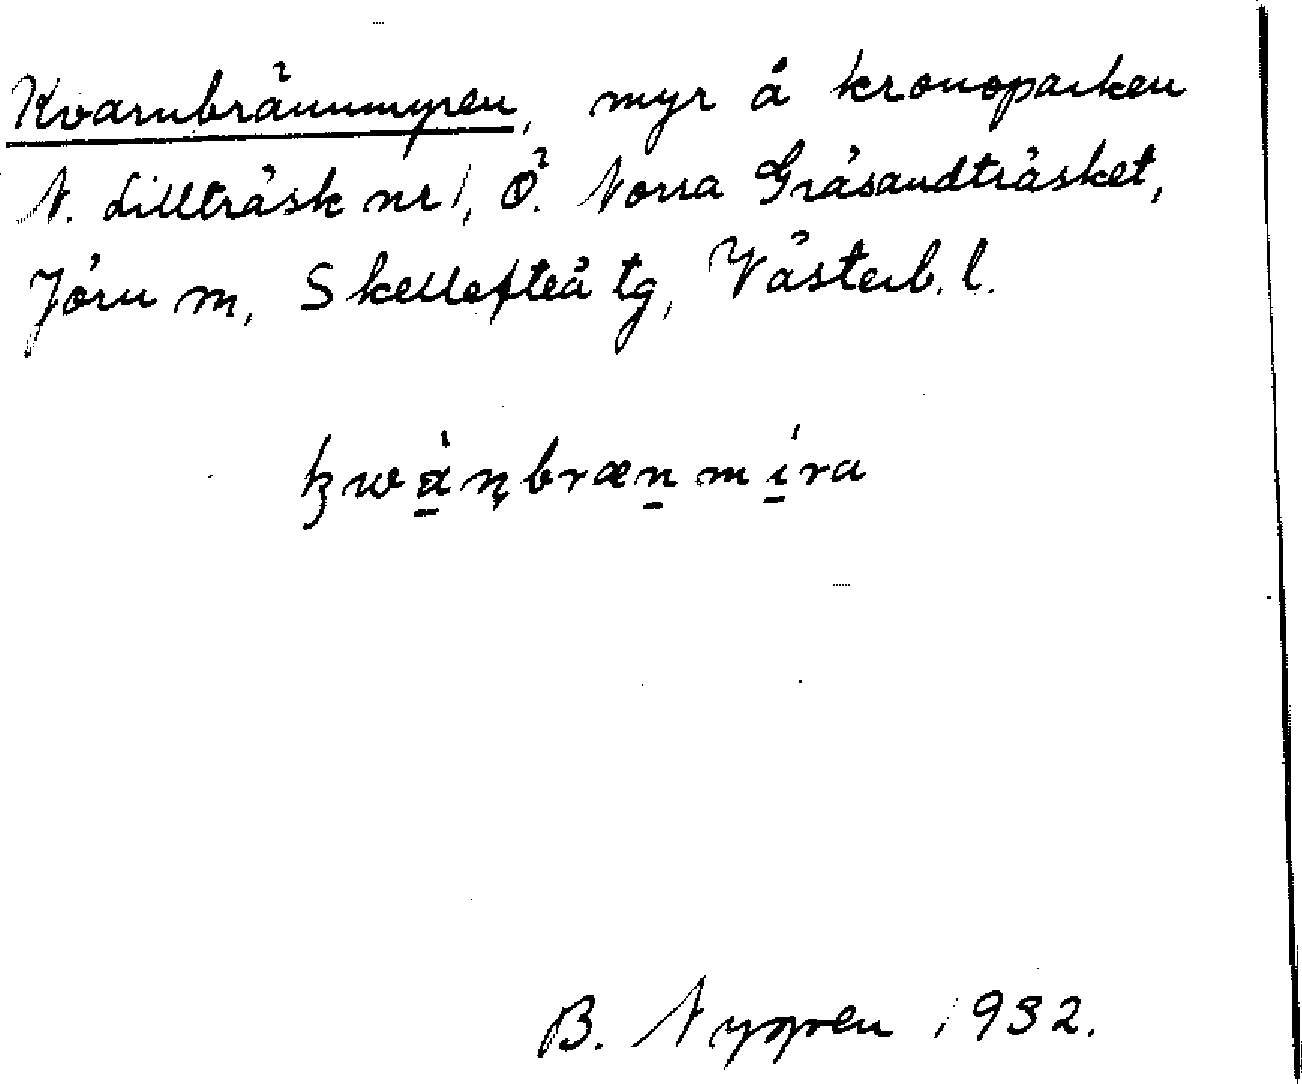 Kvarnbrännmyren, myr å kronoparken
N. Lillträsk nr 1, Ö. Norra Gräsandträsket,
Jörn m, Skellefteå tg, Västerb. l.
kwàṇbrænmíra
B. Nygren 1932.